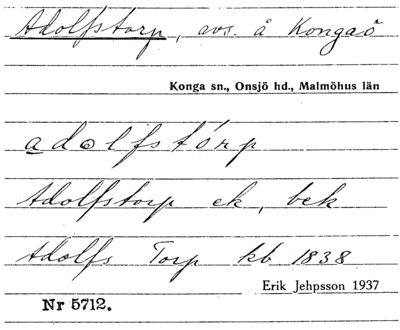 Adolfstorp, avs. å Kongaö
Konga sn., Onsjö hd., Malmöhus län
adolfstórp
Adolfstorp ek, bek
Adolfs Torp kb 1838
Erik Jehpsson 1937
Nr 5712.